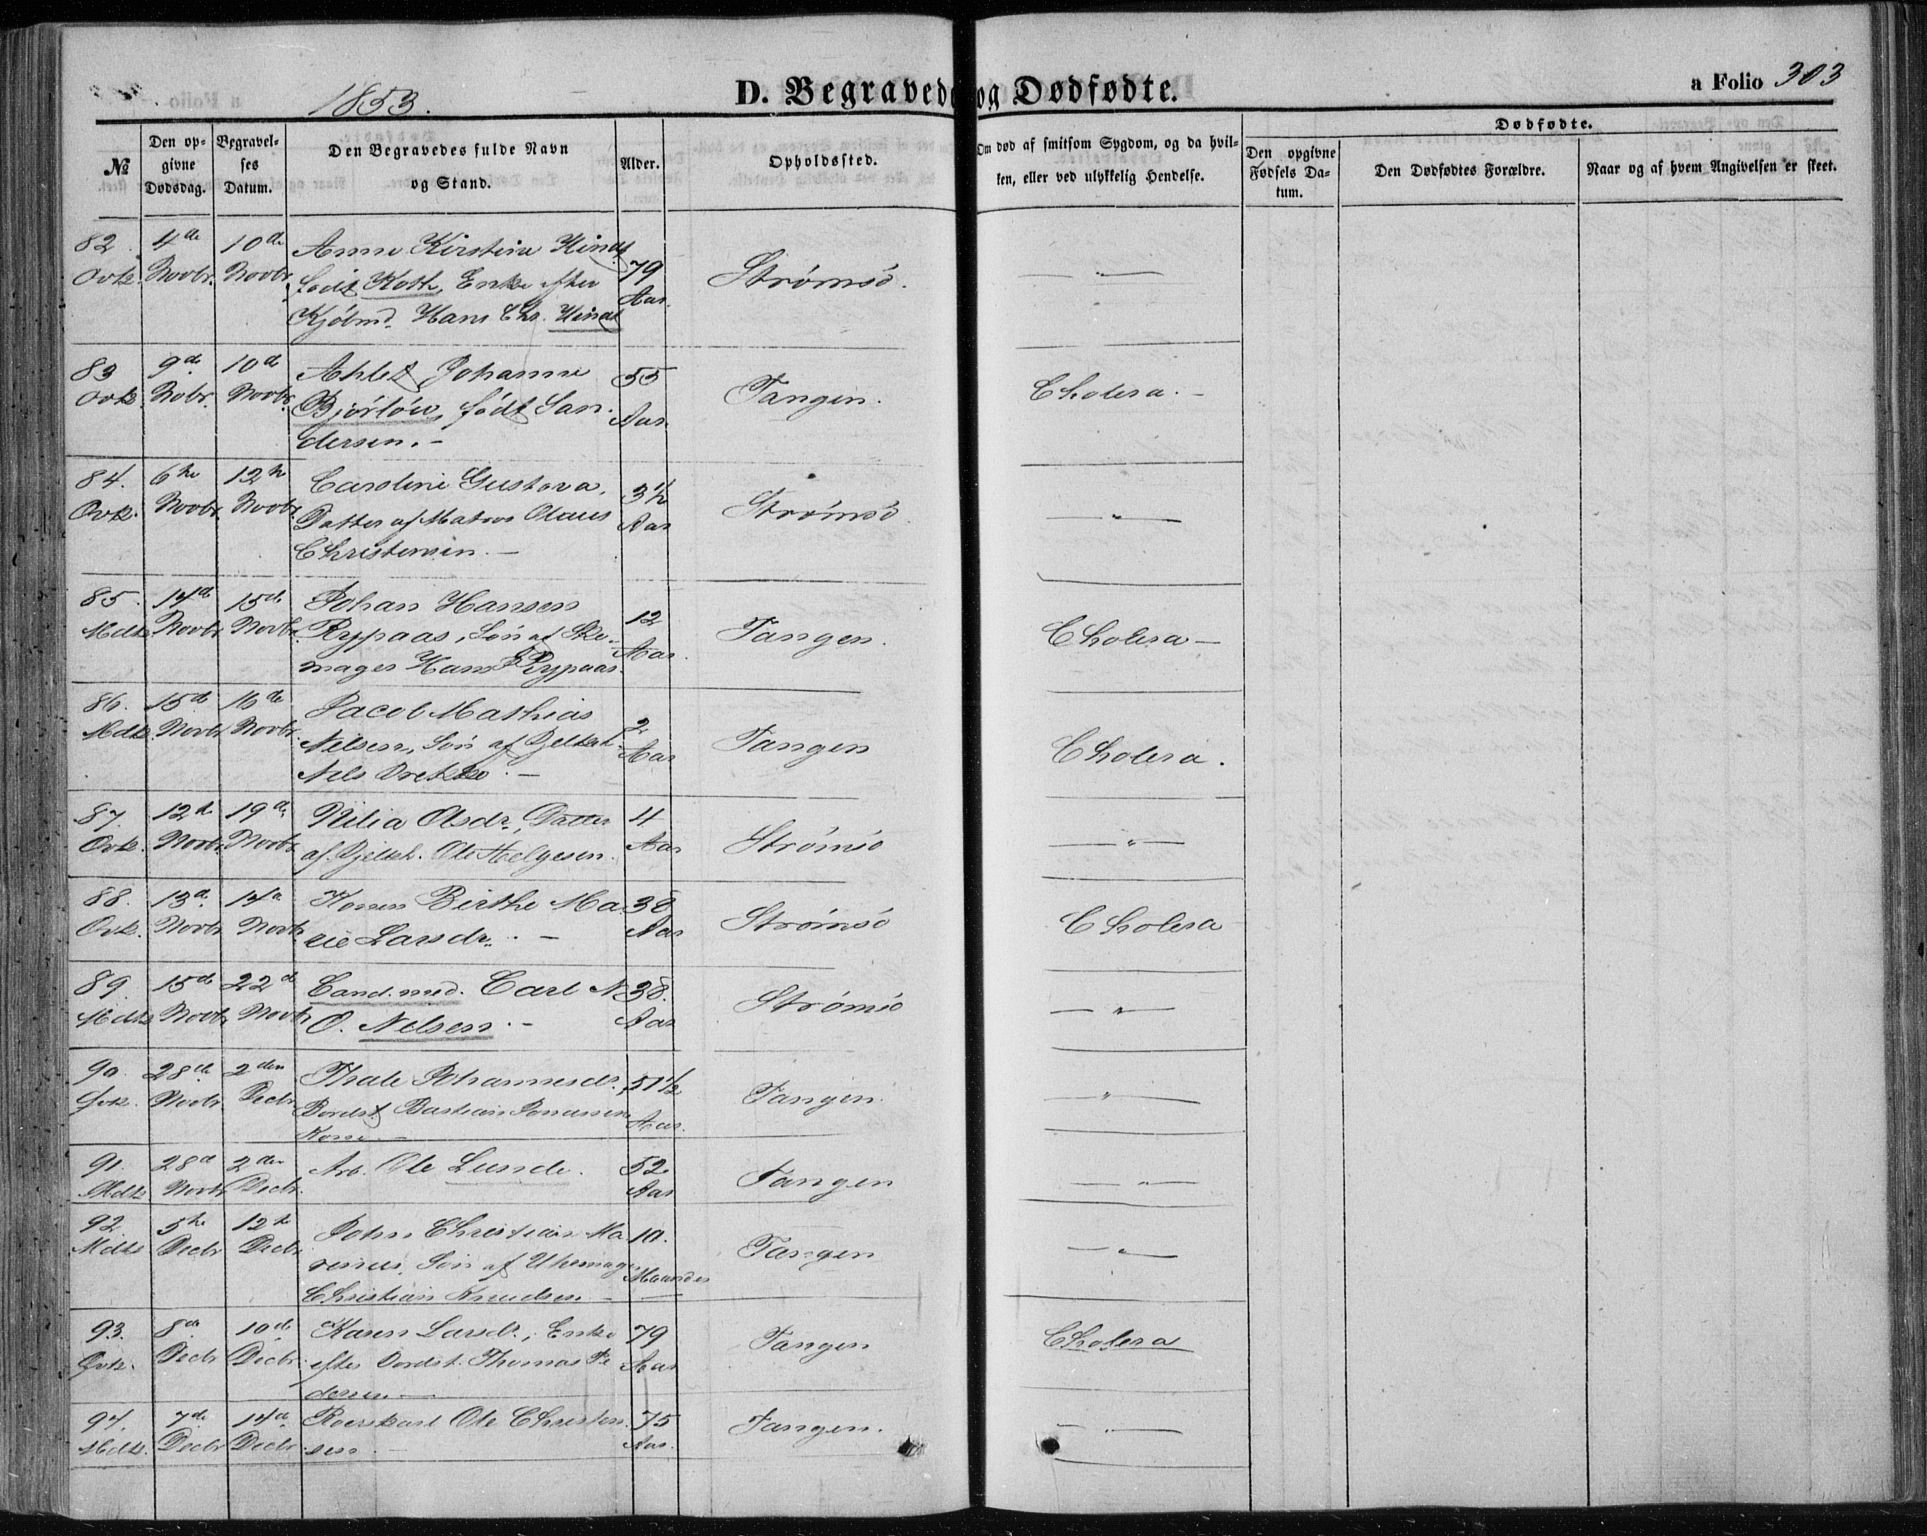 1853.
D. Begravede og Dødfødte.
a Folio 303
No
Den op-
givne
Dødsdag.
Begravel-
ses
Datum.
Den Begravedes fulde Navn
og Stand.
Alder.
Opholdssted.
Om død af smitsom Sygdom, og da hvil-
ken, eller ved ulykkelig Hendelse.
Dødfødte.
Den opgivne
Fødsels Da-
tum.
Den Dødfødtes Forældre.
Naar og af hvem Angivelsen er skeet.
82. 4de 10de Anne Kirstine
Qvk. Novbr. Novbr. født Koth, Enke efter 79 Aar. Strømsö. — " —
Kjøbmd. Hans Chr.
83 9de 10de Johanne 55
Qvk. Nobr. Novbr. født San- Aar. Tangen. Cholera. —
dersen. —
84. 6te 12te Caroline Gustava, 3½
Qvk. Novbr. Novbr. Datter af Matros Olaus Aar Strømsö. — " —
Christensen. —
85. 14de 15de Johan Hansen 12
Mdk. Novbr. Novbr. Rypaas, Søn af Sko- Aar. Tangen. Cholera —
mager Hans Rypaas.
86. 15de 16de Jacob Mathias 2
Mdk. Novbr. Novbr. Nilsen, Søn af Aar Tangen Cholera.
Nils —
87. 12te 19de Nilia Olsdr., Datter 4
Qvk. Novbr. Novbr. af Ole Helgesen. Aar Strømsö — " —
88. 13de 14de Konen Birthe Ma 38
Qvk. Novbr. Novbr rie Larsdr. — Aar Strømsö Cholera
89. 15de 22de Cand. med. Carl N. 38.
Mdk Novbr. Novbr O. Nelsen. — Aar Strømsö — " —
90. 28de 2den Thale Johannesdr. 51½
Qvk. Novbr. Decbr. Bastian Aar. Tangen — " —
Kone —
91. 28de 2den Arb. Ole Lunde. 52
Mdk Novbr Decbr. Aar Tangen — " —
92. 5te 12te John Christian Ma 10.
Mdk Decbr Decbr rinus, Søn af Uhrmager Maaneder Tangen — " —
Christian Knudsen —
93. 8de 10de Karen Larsdr., Enke 79
Qvk. Decbr Decbr. efter Thomas Pe Aar Tangen Cholera
dersen —
94. 7de 14de Roerskarl Ole Christen 75
Mdk. Decbr Decbr. sen — Aar. Tangen. — " —